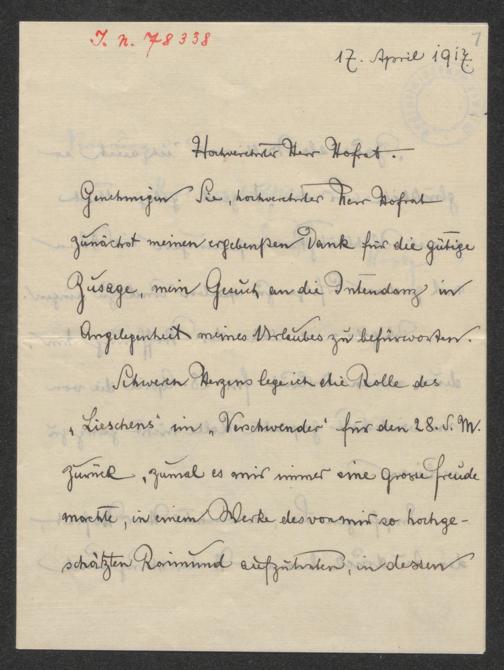 I. N. 78338
17. April 1917.
Hochverehrter Herr Hofrat.
Genehmigen Sie, hochverehrter Herr Hofrat
zunächst meinen ergebensten Dank für die gütige
Zusage, mein Gesuch an die Intendanz in
Angelegenheit meines Urlaubes zu befürworten.
Schweren Herzens lege ich die Rolle des
"Lieschens" im "Verschwender" für den 28. d. M.
zurück, zumal es mir immer eine grosse Freude
machte, in einem Werke des von mir so hochge-
schätzten Raimund aufzutreten, in dessen